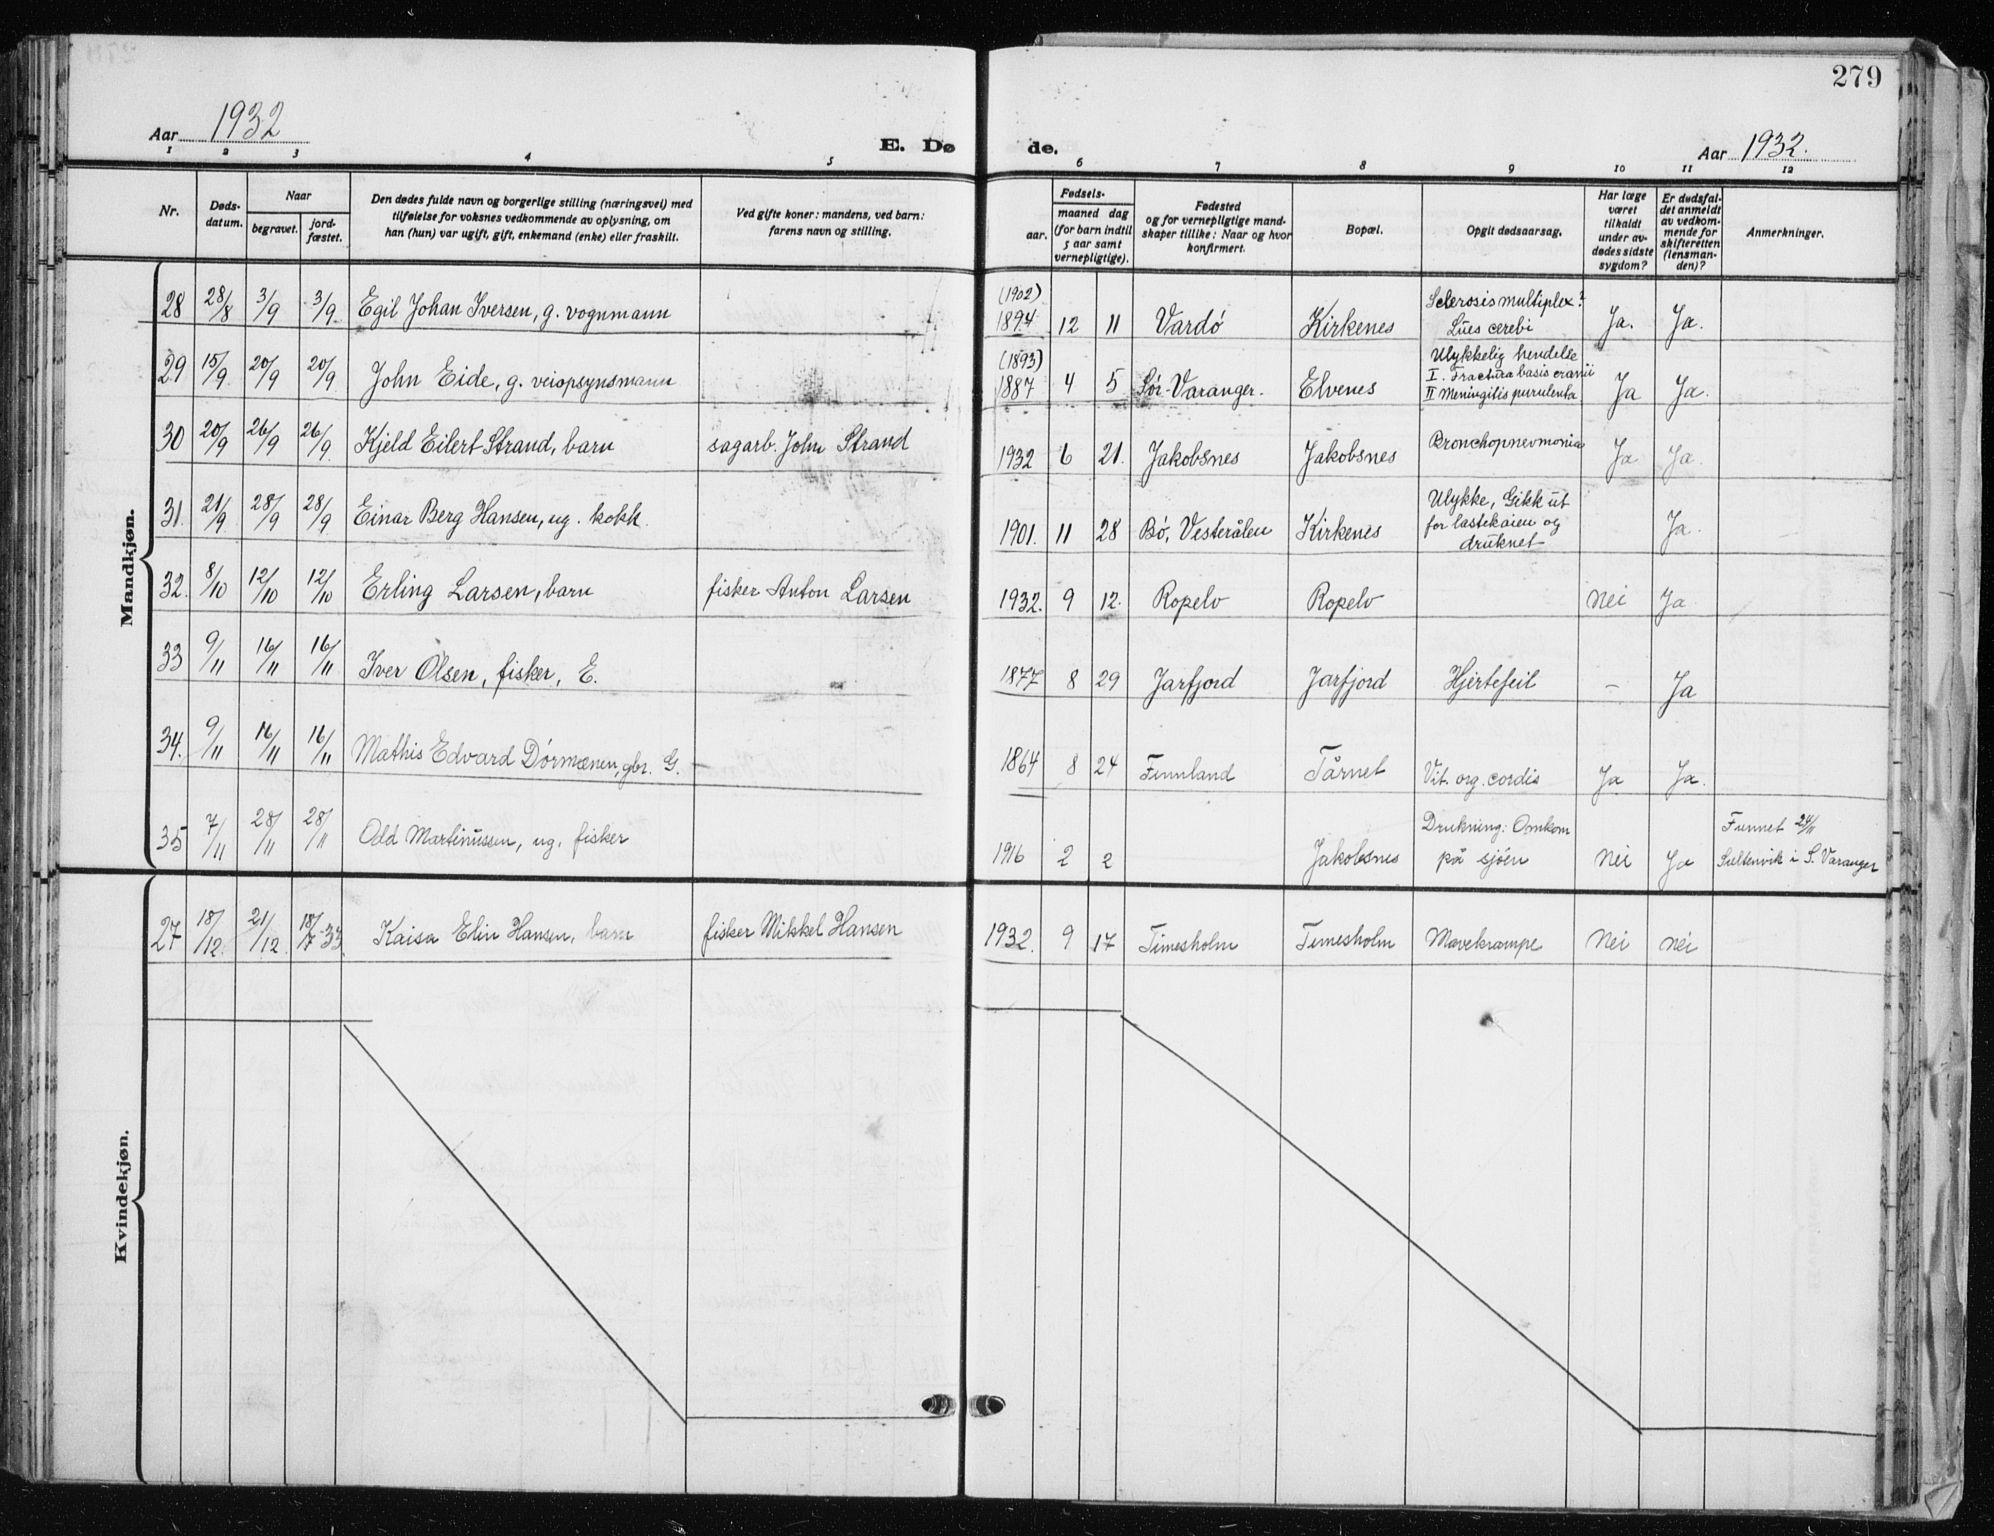 279
Aar 1932
E. Dø
de.
Aar 1932.
1 2 3 4 5
6 7 8 9 10 11 12
Nr.
Døds-
datum.
Naar
begravet.
jord-
fæstet.
Den dødes fulde navn og borgerlige stilling (næringsvei) med
tilføielse for voksnes vedkommende av oplysning, om
han (hun) var ugift, gift, enkemand (enke) eller fraskilt.
Ved gifte koner: mandens, ved barn:
farens navn og stilling.
Fødsels-
aar.
maaned dag
(for barn indtil
5 aar samt
vernepligtige).
Fødested
og for vernepligtige mand-
skaper tillike: Naar og hvor
konfirmert.
Bopæl.
Opgit dødsaarsag.
Har læge
været
tilkaldt
under av-
dødes sidste
sygdom?
Er dødsfal-
det anmeldt
av vedkom-
mende for
skifteretten
(lensman-
den)?
Anmerkninger.
Mandkjøn.
28 28/8 3/9 3/9 Egil Johan Iversen, g. vognmann (1902) 1894 12 11 Vardø Kirkenes Sclerosis multiplex? Ja. Ja.
Lües cerebi
29 15/9 20/9 20/9 John Eide, g. veiopsynsmann (1893) 1887 4 5 Sør-Varanger. Elvenes Ulykkelig hendelse Ja Ja.
I. Fractura basis cranii
II Meningitis purulenta
30 20/9 26/9 26/9 Kjeld Eilert Strand, barn sagarb. John Strand 1932 6 21. Jakobsnes Jakobsnes Bronchopnevmonia Ja Ja.
31. 21/9 28/9 28/9 Einar Berg Hansen, ug. kokk. 1901. 11 28 Bø, Vesterålen Kirkenes Ulykke, Gikk ut Ja.
for lastekaien og
druknet
32. 8/10 12/10 12/10 Erling Larsen, barn fisker Anton Larsen 1932. 9 12. Ropelv Ropelv Nei Ja
33 9/11 16/11 16/11 Iver Olsen, fisker, E. 1877 8 29 Jarfjord Jarfjord Hjertefeil - Ja
34. 9/11 16/11 16/11 Mathis Edvard Dørmænen, gbr. G. 1864 8 24 Finnland Tårnet Vit. org. cordis Ja Ja.
35 7/11 28/11 28/11 Odd Martinussen, ug. fisker 1916 2 2 Jakobsnes Drukning: Omkom Nei Ja Funnet 24/11
på sjøen Sultenvik i S. Varanger
Kvindekjøn.
27 18/12. 21/12. 18/7-33. Kaisa Elin Hansen, barn fisker Mikkel Hansen 1932. 9 17 Timesholm Timesholm Mavekrampe Nei nei